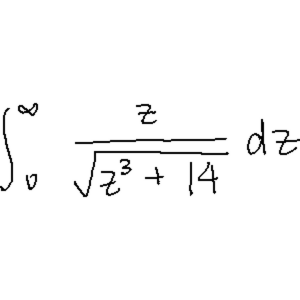 \int_0^\infty \frac{z}{\sqrt{z^3 + 14}} dz